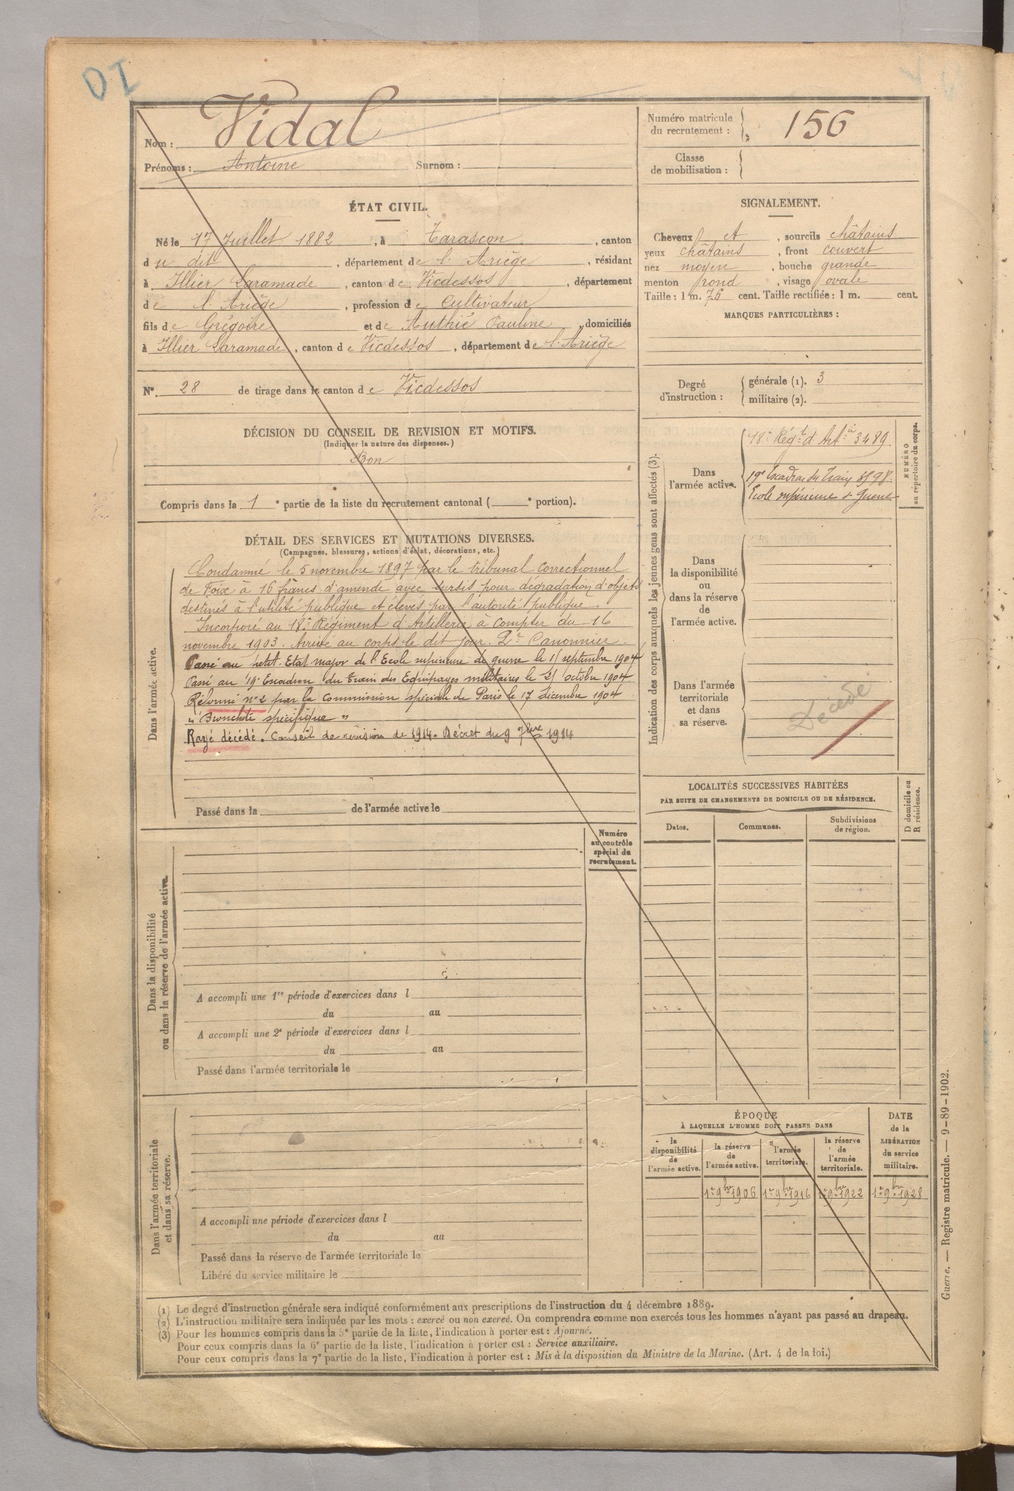 DI
Nom : Vidal
Prénoms : Antoine Surnom :
Numéro matricule du recrutement : 156
Classe de mobilisation :
ÉTAT CIVIL.
Né le 17 Juillet 1882, à Tarascon, canton
du dit, département de l'Ariège, résidant
à Illier Laramade, canton de Vicdessos, département
de l'Ariège, profession de Cultivateur
fils de Grégoire et de Authié Pauline, domiciliés
à Illier Laramade, canton de Vicdessos, département de l'Ariège
N° 28 de tirage dans le canton de Vicdessos
SIGNALEMENT.
Cheveux et, sourcils châtains
yeux châtains, front couvert
nez moyen, bouche grande
menton rond, visage ovale
Taille : 1 m. 76 cent. Taille rectifiée : 1 m. cent.
MARQUES PARTICULIÈRES :
Degré d'instruction : générale (1). 3
militaire (2).
DÉCISION DU CONSEIL DE REVISION ET MOTIFS.
(Indiquer la nature des dispenses.)
Bon
Compris dans la 1e partie de la liste du recrutement cantonal ( e portion).
DÉTAIL DES SERVICES ET MUTATIONS DIVERSES.
(Campagnes, blessures, actions d'éclat, décorations, etc.)
Dans l'armée active.
Condamné le 5 novembre 1897 par le tribunal Correctionnel
de Foix à 16 francs d'amende avec sursis pour dégradation d'objets
destinés à l'utilité publique et élevés par l'autorité publique.
Incorporé au 18e Régiment d'Artillerie à compter du 16
novembre 1903. Arrivé au corps le dit jour. 2e Canonnier
Passé au petit Etat major de l'Ecole supérieure de guerre le 11 septembre 1904
Passé au 19e Escadron du Train des Equipages militaires le 31 octobre 1904
Réformé n°2 par la Commission spéciale de Paris le 17 Décembre 1904
"Bronchite spécifique"
Rayé décédé. Conseil de revision de 1914. Décret du 9 7bre 1914
Passé dans la de l'armée active le
Indication des corps auxquels les jeunes gens sont affectés (3).
NUMÉRO au répertoire du corps.
Dans l'armée active.
18e Régt d'Artie 3489
19e Escadron du Train 5798
Ecole supérieure de Guerre
Dans la disponibilité ou dans la réserve de l'armée active.
Dans l'armée territoriale et dans sa réserve.
Décédé
LOCALITÉS SUCCESSIVES HABITÉES
PAR SUITE DE CHANGEMENTS DE DOMICILE OU DE RÉSIDENCE.
Dates. Communes. Subdivisions de région. D domicile ou R résidence.
Numéro au contrôle spécial du recrutement.
Dans la disponibilité ou dans la réserve de l'armée active.
A accompli une 1re période d'exercices dans l
du au
A accompli une 2e période d'exercices dans l
du au
Passé dans l'armée territoriale le
Dans l'armée territoriale et dans sa réserve.
A accompli une période d'exercices dans l
du au
Passé dans la réserve de l'armée territoriale le
Libéré du service militaire le
ÉPOQUE
À LAQUELLE L'HOMME DOIT PASSER DANS
la disponibilité de l'armée active. la réserve de l'armée active. l'armée territoriale. la réserve de l'armée territoriale. DATE de la LIBÉRATION du service militaire.
1er 9bre 1906 1er 9bre 1916 1er 9bre 1922 1er 9bre 1928
(1) Le degré d'instruction générale sera indiqué conformément aux prescriptions de l'instruction du 4 décembre 1889.
(2) L'instruction militaire sera indiquée par les mots : exercé ou non exercé. On comprendra comme non exercés tous les hommes n'ayant pas passé au drapeau.
(3) Pour les hommes compris dans la 5e partie de la liste, l'indication à porter est : Ajourné.
Pour ceux compris dans la 6e partie de la liste, l'indication à porter est : Service auxiliaire.
Pour ceux compris dans la 7e partie de la liste, l'indication à porter est : Mis à la disposition du Ministre de la Marine. (Art. 4 de la loi.)
Guerre. — Registre matricule. — 9-89-1902.